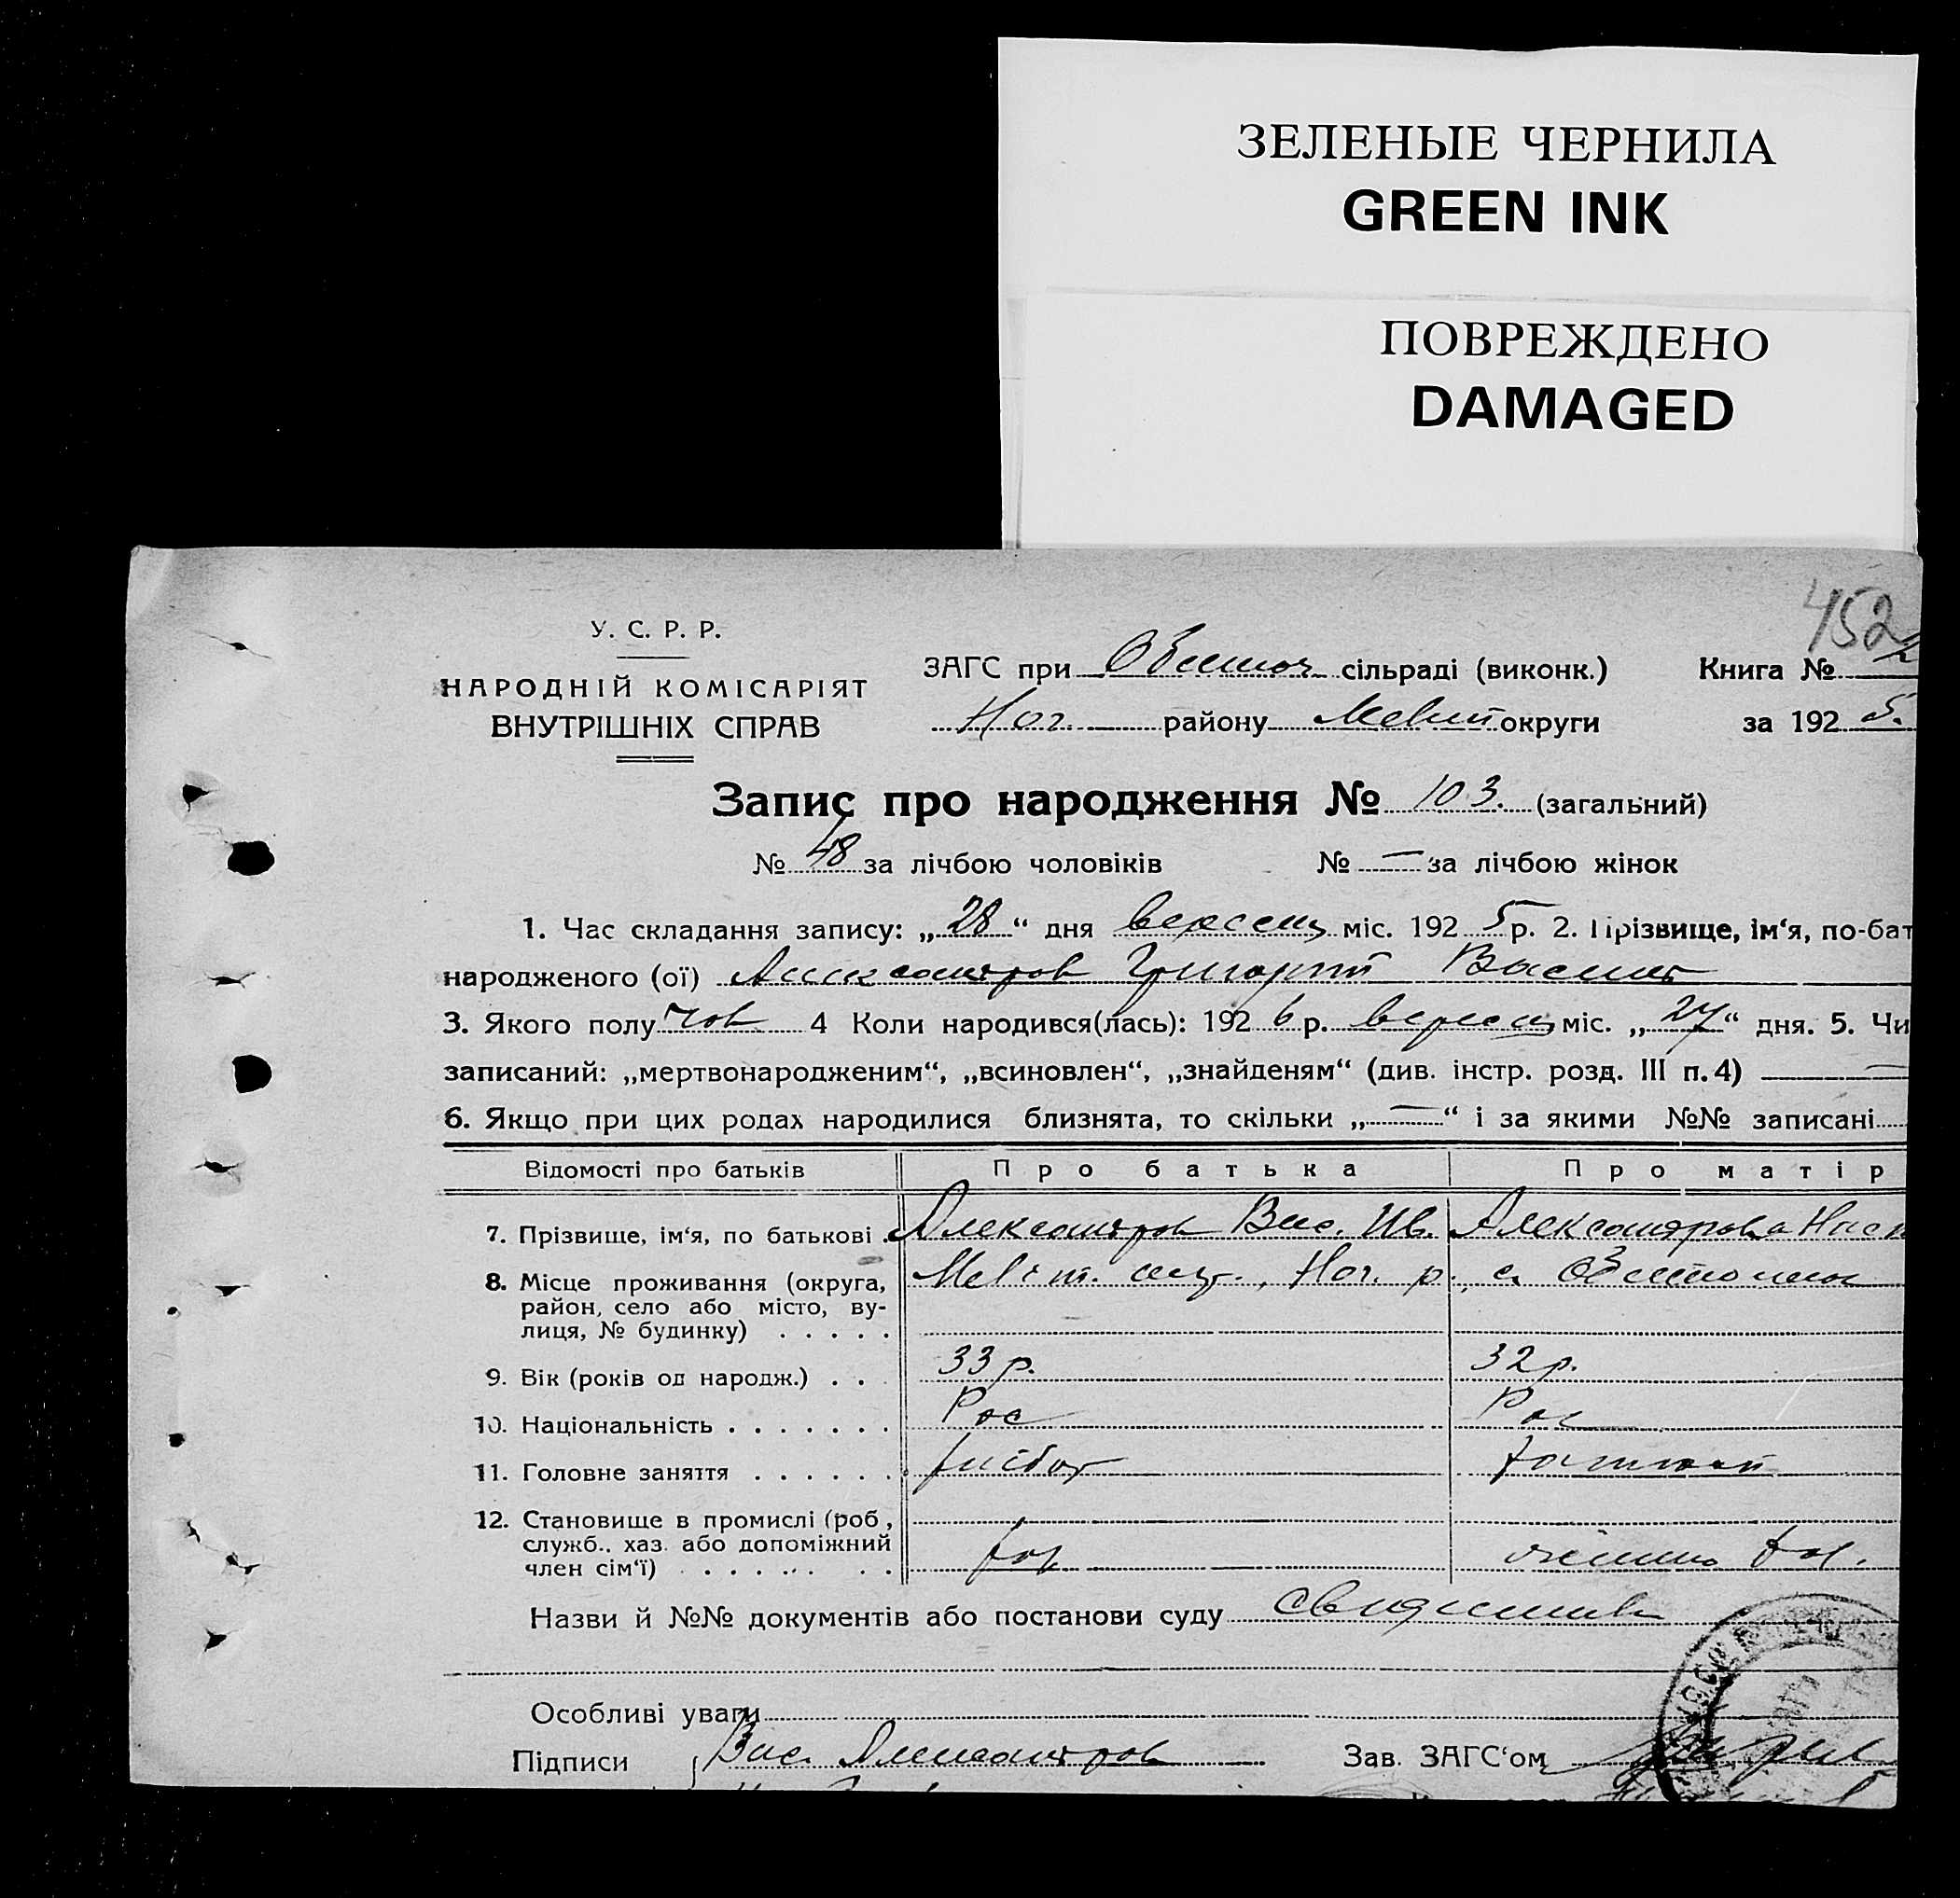 ЗЕЛЕНЫЕ ЧЕРНИЛА
GREEN INK
ПОВРЕЖДЕНО
DAMAGED
452
У. С. Р. Р.
НАРОДНІЙ КОМІСАРІЯТ
ВНУТРІШНІХ СПРАВ
ЗАГС при сільраді (виконк.) Книга №
Ног. району округи за 192 5.
Запис про народження № 103. (загальний)
№ 48 за лічбою чоловіків № — за лічбою жінок
1. Час складання запису: „28“ дня міс. 192 5 р. 2. Прізвище, ім‘я, по-бат
народженого (ої) Григорий
3. Якого полу чов 4 Коли народився(лась): 192 6 р. міс. „27“ дня. 5. Чи
записаний: „мертвонародженим“, „всиновлен“, „знайденям“ (див. інстр. розд. III п. 4) —
6. Якщо при цих родах народилися близнята, то скільки „—“ і за якими №№ записані
Відомості про батьків Про батька Про матір
7. Прізвище, ім‘я, по батькові . Александров Вас. Ив. Александрова Наст
8. Місце проживання (округа, Меліт. окр., Ног. р., с.
район, село або місто, ву-
лиця, № будинку) . . . . .
9. Вік (років од народж.) . . 33 р. 32 р.
10. Національність . . . . . . . Рос Рос
11. Головне заняття . . . . . . хлібор
12. Становище в промислі (роб,
служб., хаз. або допоміжний
член сім‘ї) . . . . . . . .
Назви й №№ документів або постанови суду
Особливі уваги
Підписи Вас. Александров Зав. ЗАГС‘ом